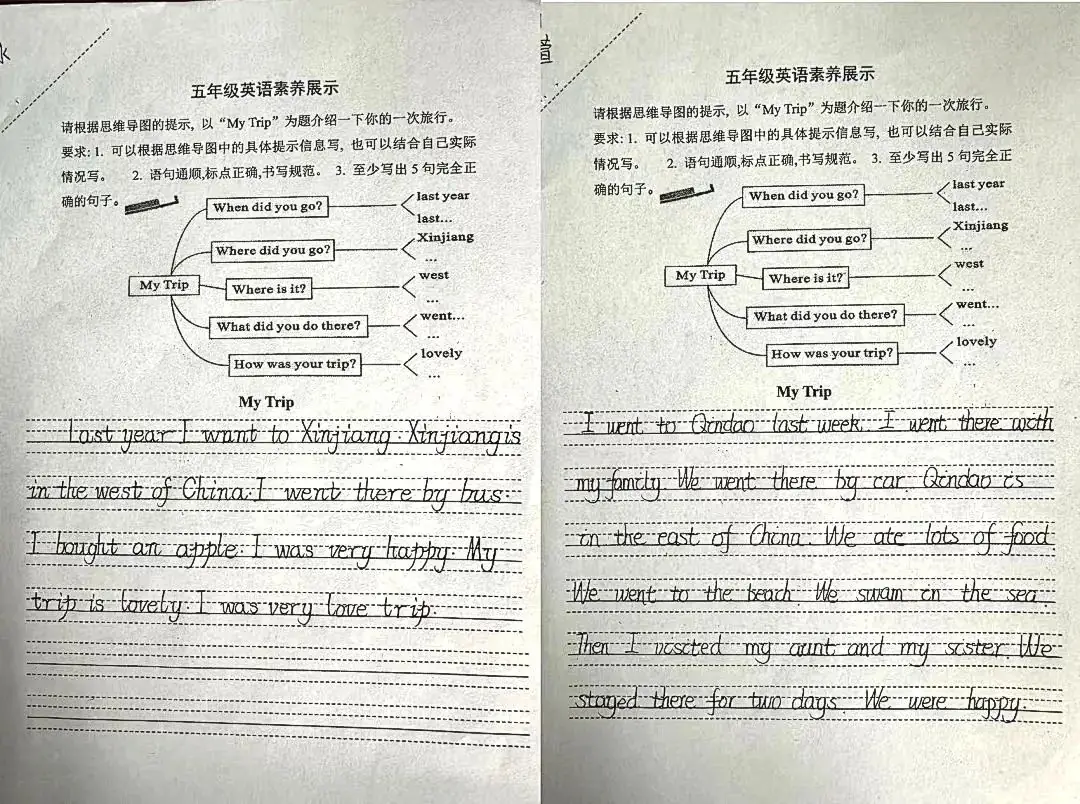 五年级英语素养展示
请根据思维导图的提示, 以“My Trip”为题介绍一下你的一次旅行。
要求: 1. 可以根据思维导图中的具体提示信息写, 也可以结合自己实际
情况写。 2. 语句通顺,标点正确,书写规范。 3. 至少写出 5 句完全正
确的句子。
When did you go?
last year
last...
Where did you go?
Xinjiang
...
My Trip
Where is it?
west
...
What did you do there?
went...
...
How was your trip?
lovely
...
My Trip
Last year I want to Xinjiang. Xinjiang is
in the west of China. I went there by bus.
I bought an apple. I was very happy. My
trip is lovely. I was very love trip.
五年级英语素养展示
请根据思维导图的提示, 以“My Trip”为题介绍一下你的一次旅行。
要求: 1. 可以根据思维导图中的具体提示信息写, 也可以结合自己实际
情况写。 2. 语句通顺,标点正确,书写规范。 3. 至少写出 5 句完全正
确的句子。
When did you go?
last year
last...
Where did you go?
Xinjiang
...
My Trip
Where is it?
west
...
What did you do there?
went...
...
How was your trip?
lovely
...
My Trip
I went to Qindao last week. I went there with
my family. We went there by car. Qindao is
in the east of China. We ate lots of food.
We went to the beach. We swam in the sea.
Then I visited my aunt and my sister. We
stayed there for two days. We were happy.